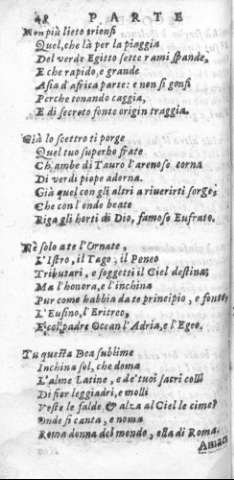 48 PARTE
Non più lieto trionfi
Quel, che là per la piaggia
Del verde Egitto sette rami spande,
E che rapido, e grande
Asia d'africa parte: e non si gonfi
Perche tonando caggia,
E di secreto fonte origin traggia.
Già lo scettro ti porge
Quel tuo superbo frate
Ch'ambe di Tauro l'arenose corna
Di verdi piope adorna.
Già quel con gli altri a riverirti sorge,
Che con l'onde beate
Riga gli horti di Dio, famoso Eufrate.
Nè solo a te l'Ornate,
L'Istro, il Tago, il Peneo
Tributari, e soggetti il Ciel destina;
Ma l'honora, e l'inchina
Pur come habbia da te principio, e fonte,
L'Eusino, l'Eritreo,
E col padre Ocean l'Adria, e l'Egeo.
Tu questa Dea sublime
Inchina sol, che doma
L'alme Latine, e de' tuoi sacri colli
Di fior leggiadri, e molli
Veste le falde & alza al Ciel le cime:
Onde si canta, e noma
Roma donna del mondo, ella di Roma.
Aman